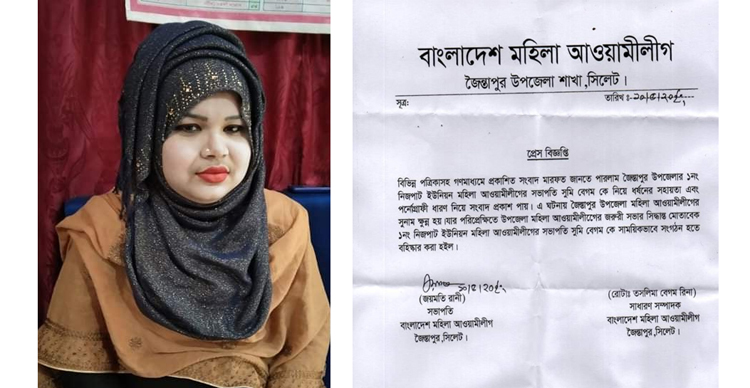 বাংলাদেশ মহিলা আওয়ামীলীগ
জৈন্তাপুর উপজেলা শাখা,সিলেট।
সূত্র:
তারিখ ঃ
প্রেস বিজ্ঞপ্তি
বিভিন্ন পত্রিকাসহ গণমাধ্যমে প্রকাশিত সংবাদ মারফত জানতে পারলাম জৈন্তাপুর উপজেলার ১নং
নিজপাট ইউনিয়ন মহিলা আওয়ামীলীগের সভাপতি সুমি বেগম কে নিয়ে ধর্ষনের সহায়তা এবং
পর্নোগ্রাফী ধারণ নিয়ে সংবাদ প্রকাশ পায়। এ ঘটনায় জৈন্তাপুর উপজেলা মহিলা আওয়ামীলীগের
সুনাম ক্ষুন্ন হয়।যার পরিপ্রেক্ষিতে উপজেলা মহিলা আওয়ামীলীগের জরুরী সভার সিদ্ধান্ত মোতাবেক
১নং নিজপাট ইউনিয়ন মহিলা আওয়ামীলীগের সভাপতি সুমি বেগম কে সাময়িকভাবে সংগঠন হতে
বহিষ্কার করা হইল।
(জয়মতি রানী)
সভাপতি
বাংলাদেশ মহিলা আওয়ামীলীগ
জৈন্তাপুর,সিলেট।
(রোটাঃ তসলিমা বেগম রিনা)
সাধারণ সম্পাদক
বাংলাদেশ মহিলা আওয়ামীলীগ
জৈন্তাপুর,সিলেট।